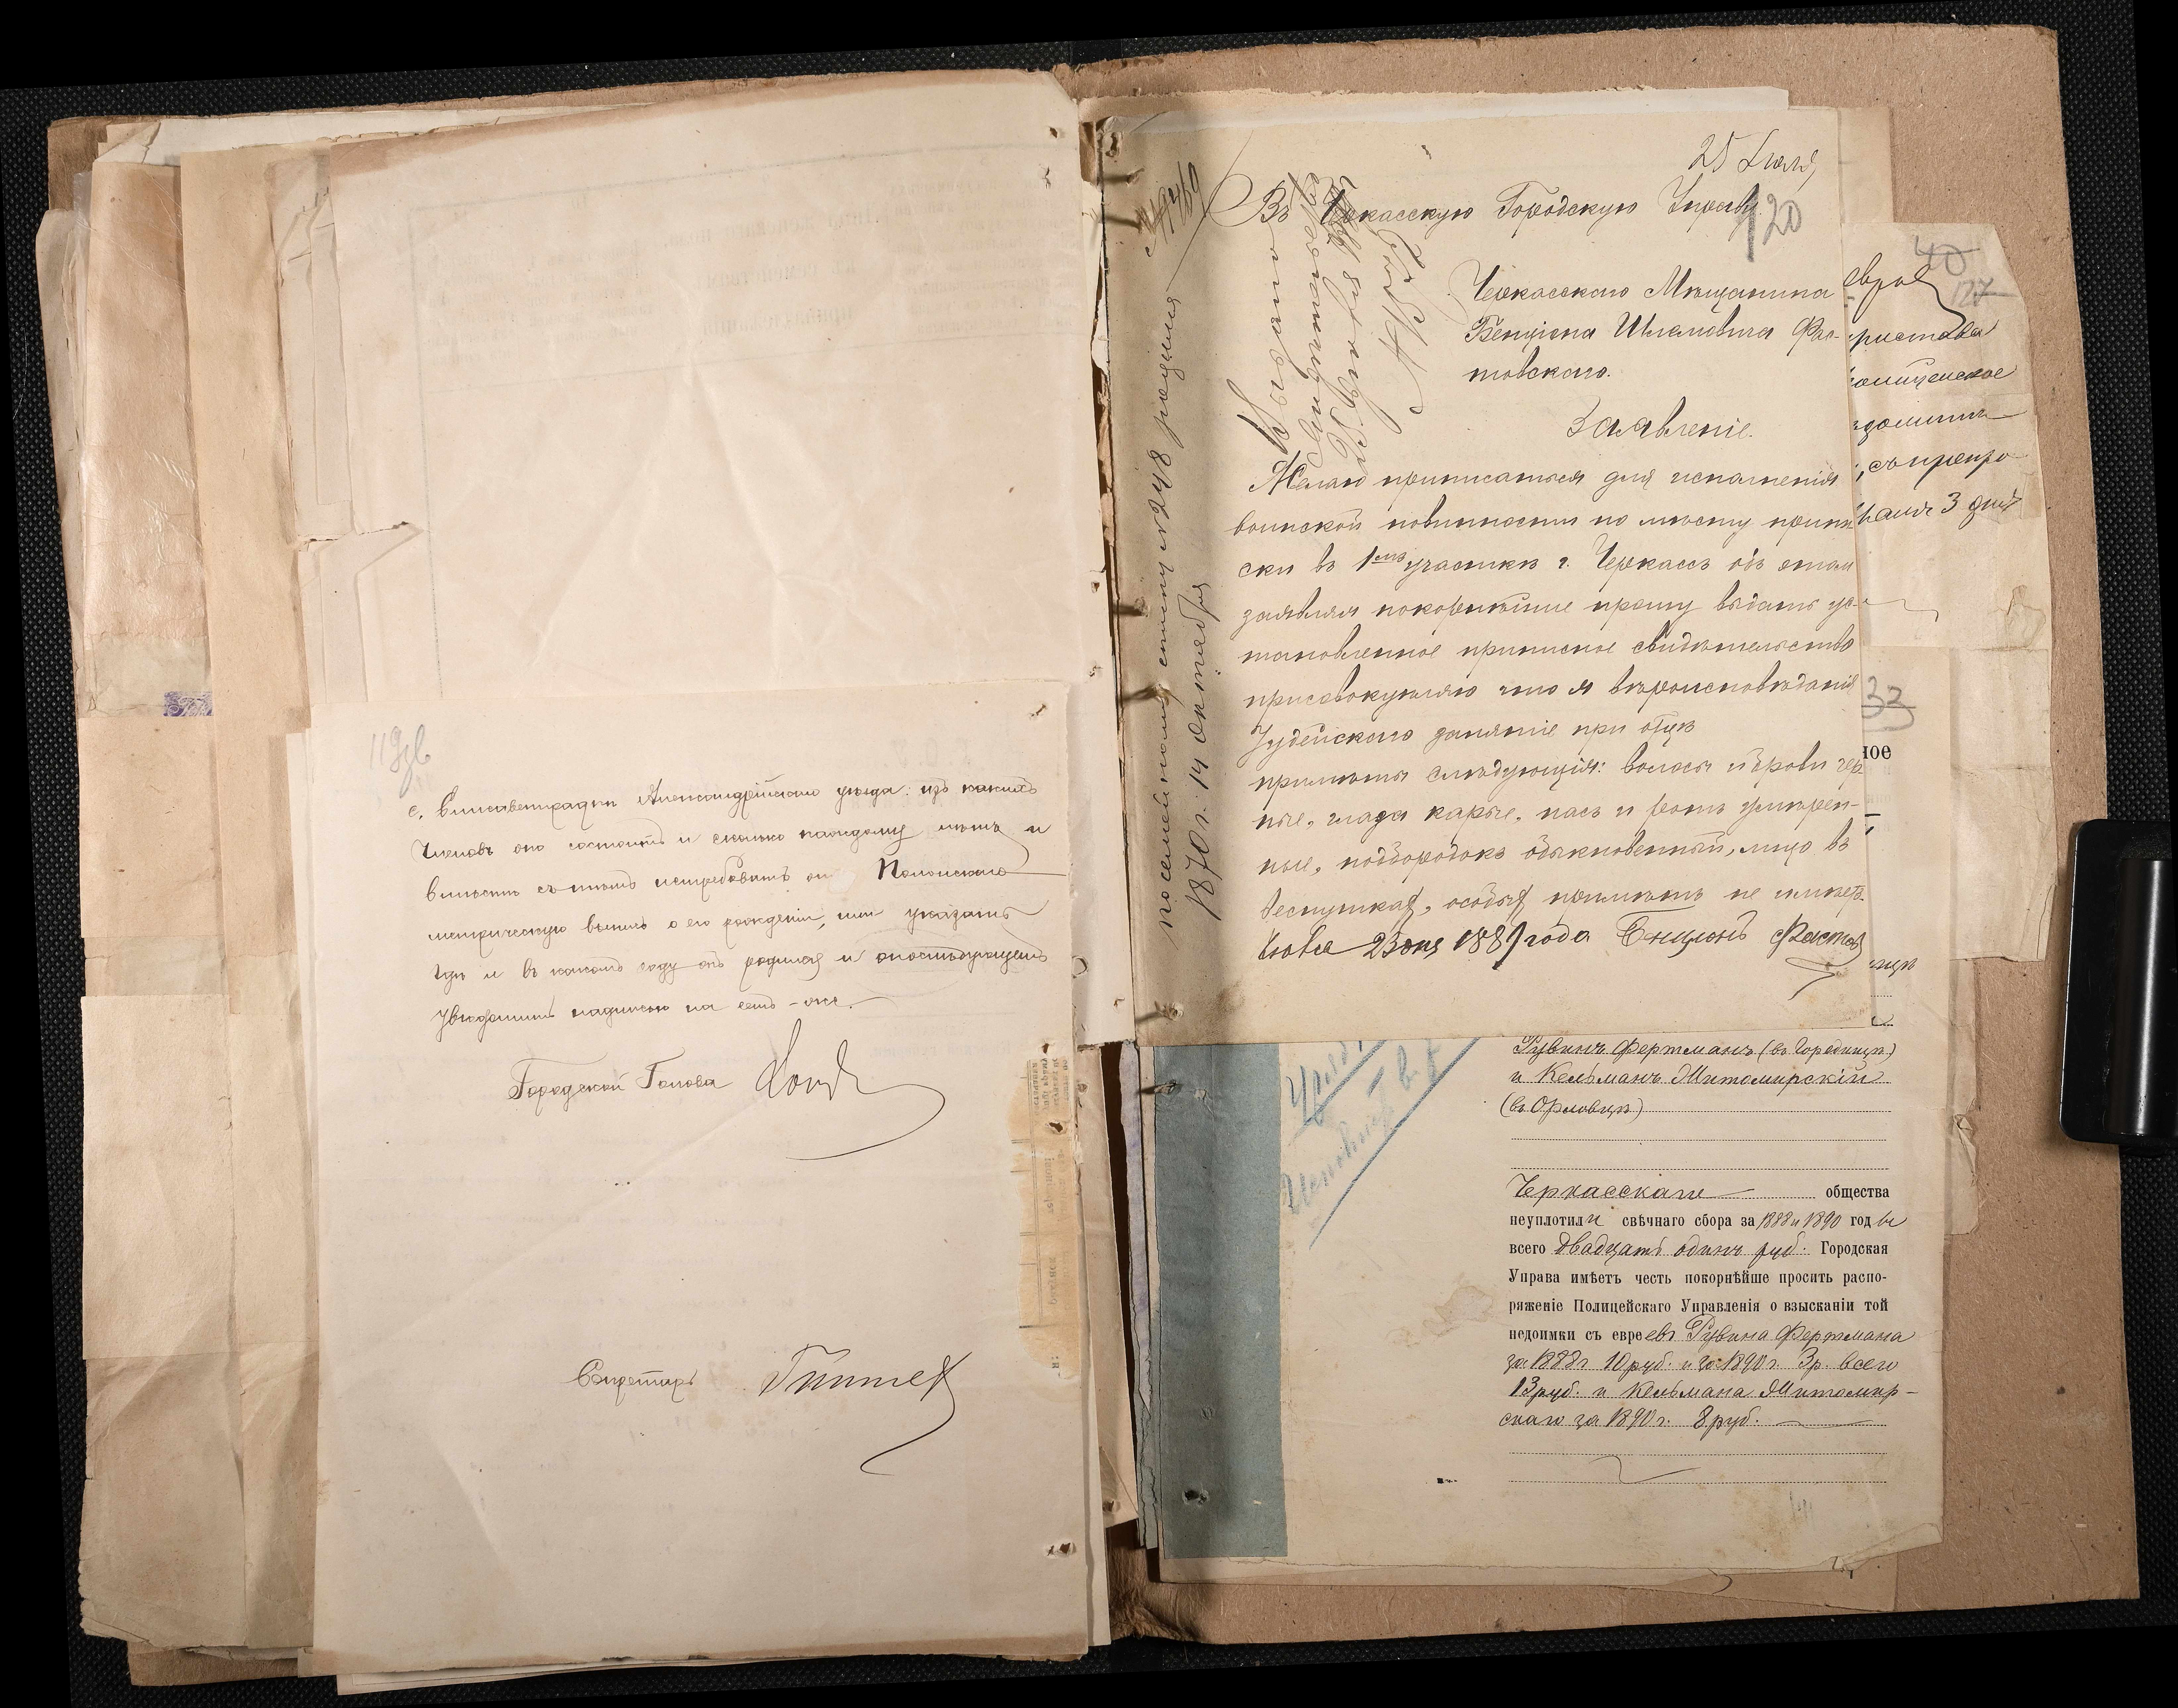 с. Елисаветградки Александрійскаго уѣзда: изъ какихъ
членовъ оно состоитъ и сколько каждому лѣтъ и
вмѣстѣ съ тѣмъ истребовать отъ Полонскаго
метрическую выпись о его рожденіи, или указать
гдѣ и въ какомъ году онъ родился и опослѣдующемъ
увѣдомить надписью на семъ-же.
Городской Голова
Секретарь
по семейному списку № 248 рожденія
1870 г. 14 октября
25 Іюля
Въ Черкасскую Городскую Управу
120
Черкасскаго Мѣщанина
Бенціона Шлемовича Фас-
товскаго.
Заявленіе.
Желаю приписаться для исполненія
воинской повинности по мѣсту припи
ски въ 1мъ участкѣ г. Черкассъ объ этом
заявляя покорнѣйше прошу выдать ус-
тановленное приписное свидѣтельство
присовокупляю что я вѣроисповѣданія
Іудейского занятіе при отцѣ
примѣты слѣдующія: волосы и брови чер
ные, глаза каріе, носъ и ротъ умѣрен-
ные, подбородокъ обыкновенный, лицо въ
веснушках, особых примѣтъ не имѣетъ
1889 года
пристава
3 дней
40
127
33
ное
Рувинъ Фертманъ (въ Городищѣ)
и Кельманъ Житомирскій
(въ Орловцѣ)
Черкасскаго общества
неуплотили свѣчнаго сбора за 1888 и 1890 годы
всего двадцать одинъ руб. Городская
Управа имѣетъ честь покорнѣйше просить распо-
ряженіе Полицейскаго Управленія о взысканіи той
недоимки съ евреевъ Рувина Фертмана
за 1888 г. 10 руб. и за 1890 г. 3 р. всего
13 руб. и Кельмана Житомир-
скаго за 1890 г. 8 руб.